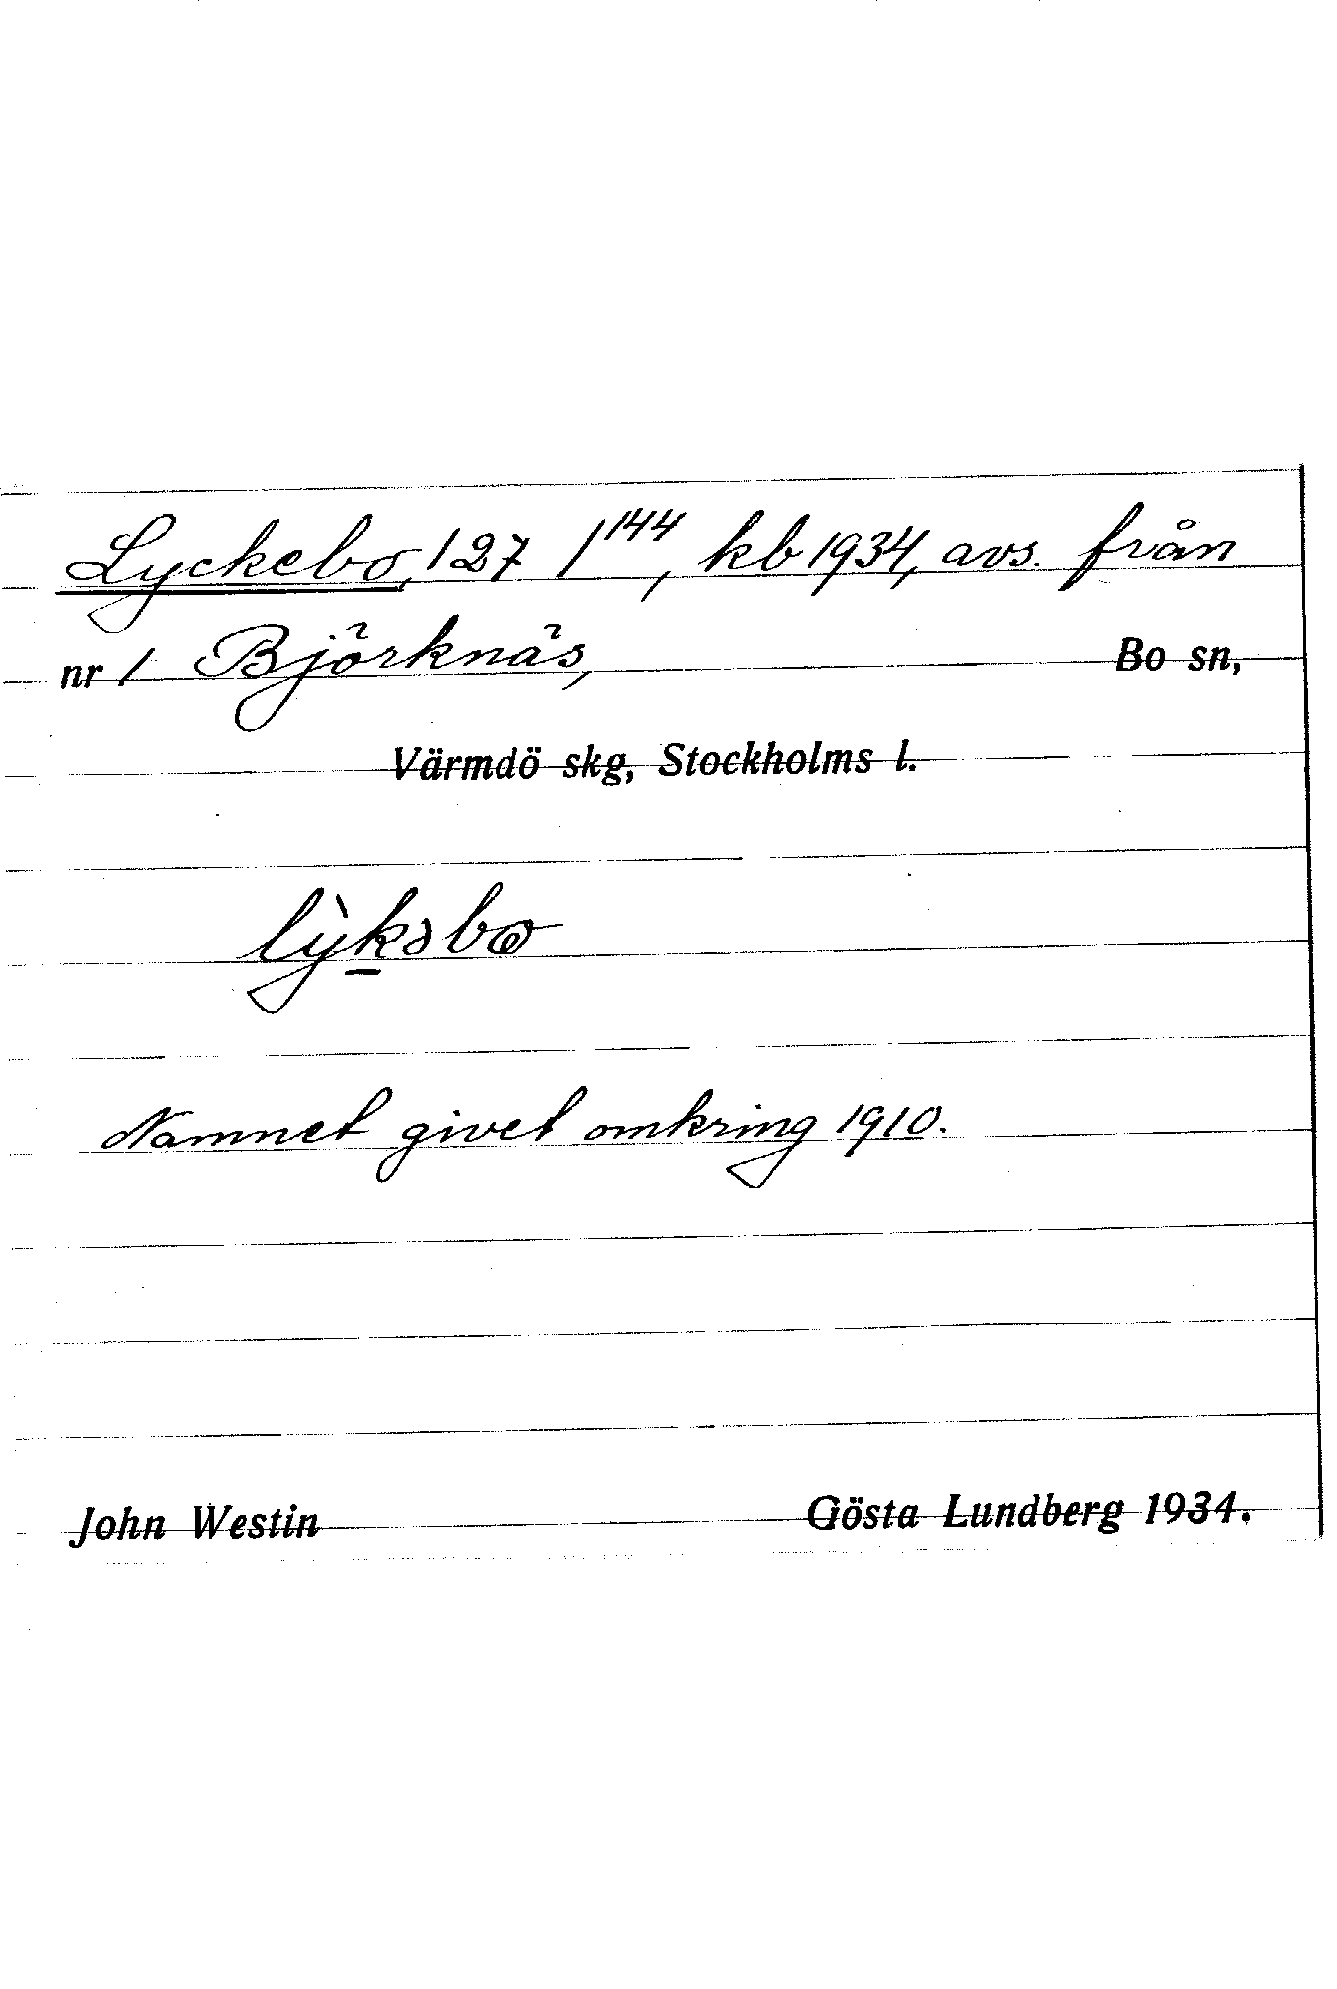 Lyckebo, 127 1¹⁴⁴, kb 1934, avs. från
nr 1 Björknäs, Bo sn,
Värmdö skg, Stockholms l.
lỳk̲əbω
Namnet givet omkring 1910.
John Westin Gösta Lundberg 1934.